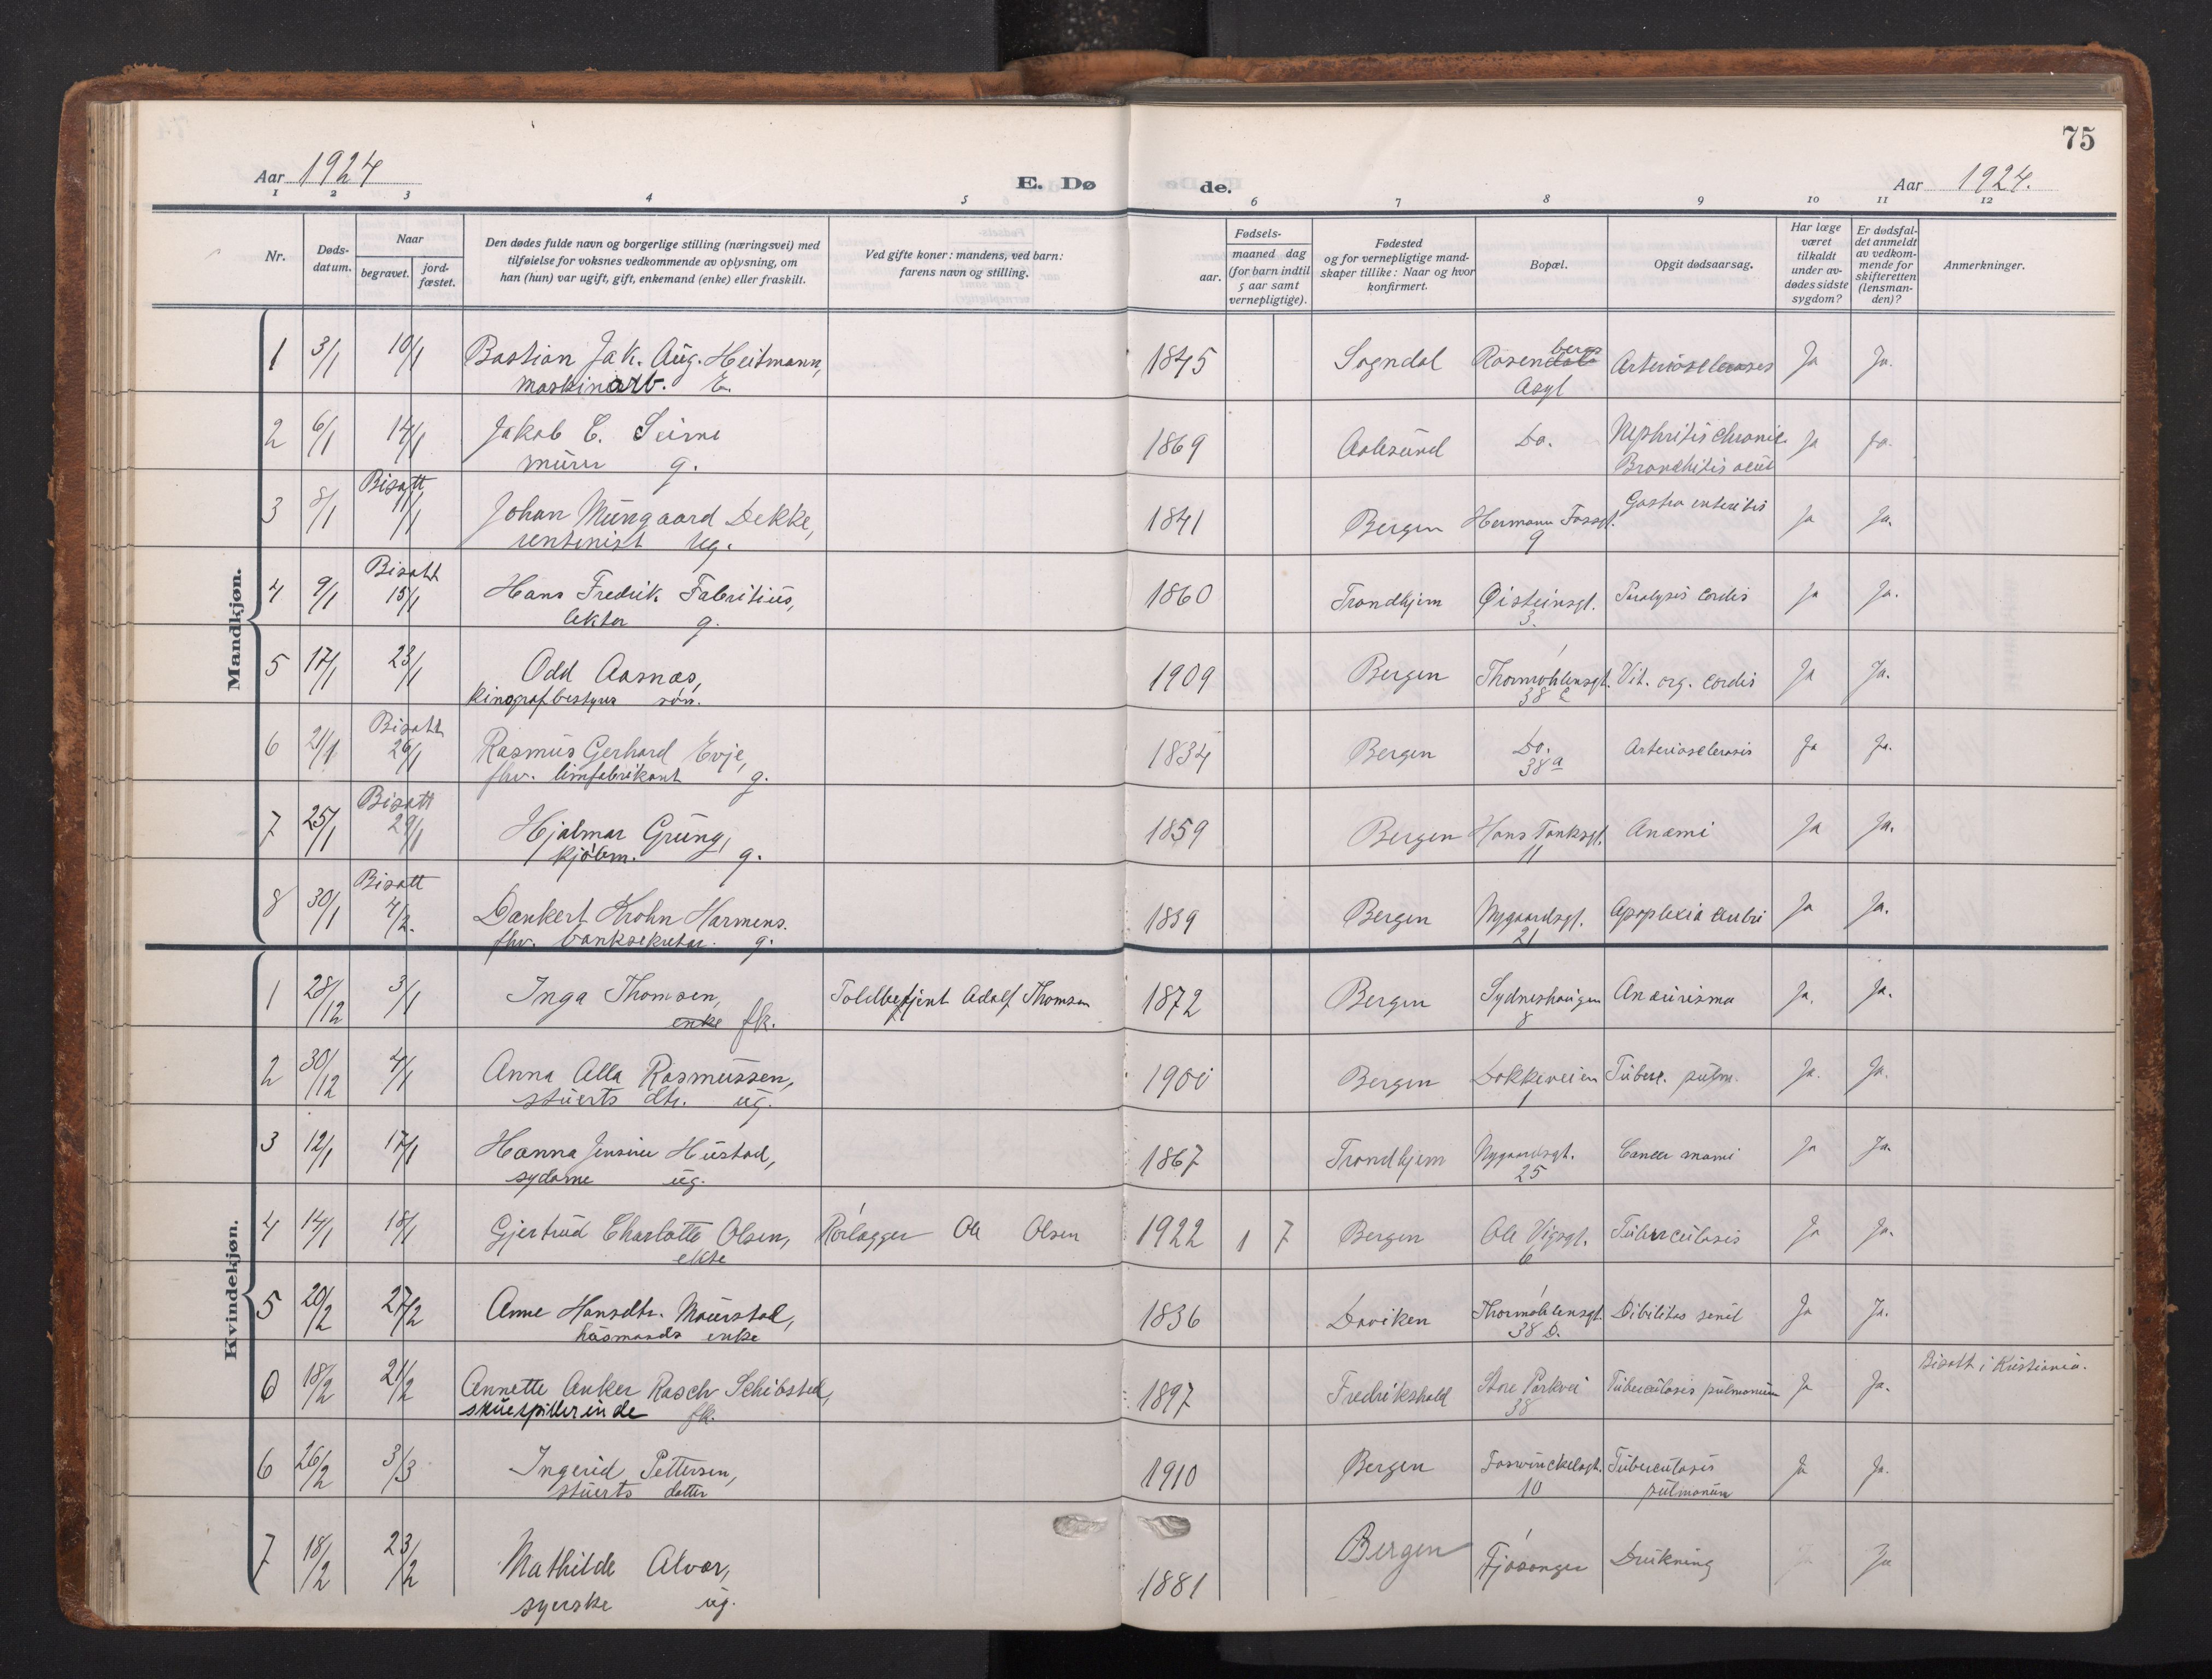 75
Aar 1924
E. Dø
de.
Aar 1924.
1 2 3 4 5 6 7 8 9 10 11 12
Nr.
Døds-
datum.
Naar
begravet.
jord-
fæstet.
Den dødes fulde navn og borgerlige stilling (næringsvei) med
tilføielse for voksnes vedkommende av oplysning, om
han (hun) var ugift, gift, enkemand (enke) eller fraskilt.
Ved gifte koner: mandens, ved barn:
farens navn og stilling.
Fødsels-
aar.
maaned dag
(for barn indtil
5 aar samt
vernepligtige).
Fødested
og for vernepligtige mand-
skaper tillike: Naar og hvor
konfirmert.
Bopæl.
Opgit dødsaarsag.
Har læge
været
tilkaldt
under av-
dødes sidste
sygdom?
Er dødsfal-
det anmeldt
av vedkom-
mende for
skifteretten
(lensman-
den)?
Anmerkninger.
Mandkjøn.
1 3/1 10/1 Bastian Jak. Aug. Heitmann, 1845 Sogndal Rosendal berg Arteriosclerosis Ja Ja.
maskinarb. E. Asyl
2 6/1 14/1 Jakob C. Seime 1869 Aalesund Do. Nephritis chronic. Ja Ja.
murer g. Bronchitis acut
Bisatt
3 8/1 11/1 Johan Mungaard Dekke, 1841 Bergen Hermann Fossgt. Gastro enteritis Ja Ja.
rentenist ug. 9
Bisatt
4 9/1 15/1 Hans Fredrik Fabritius, 1860 Trondhjem Øisteinsgt. Paralysis cordis Ja Ja.
lektor g. 3.
5 17/1 23/1 Odd Aasnæs, 1909 Bergen Thormøhlensgt. Vit. org. cordis Ja Ja.
kinografbestyrer søn. 38 C
Bisatt
6 21/1 26/1 Rasmus Gerhard Evje, 1834 Bergen Do. Arteriosclerosis Ja Ja.
fhv. limfabrikant g. 38 a
Bisatt
7 25/1 29/1 Hjalmar Grung, 1859 Bergen Hans Tanksgt. Anæmi Ja Ja.
kjøbm. g. 11
Bisatt
8 30/1 4/2. Dankert Krohn Harmens. 1839 Bergen Nygaardsgt. Apoplexia cerebri Ja Ja.
fhv. banksekretær. g. 21
Kvindekjøn.
1 28/12 3/1 Inga Thomsen, Toldbetjent Adolf Thomsen 1872 Bergen Sydneshaugen Aneurisma Ja. Ja.
enke fk. 8
2 30/12 4/1 Anna Alla Rasmussen, 1900 Bergen Dokkeveien Tuberc. pulm. Ja. Ja.
stuerts dtr. ug. 1
3 12/1 17/1 Hanna Jensine Hustad, 1867 Trondhjem Nygaardsgt. Cancer mami Ja Ja.
sydame ug. 25
4 14/1 18/1 Gjertrud Charlotte Olsen, Rørlægger Ole Olsen 1922 1 7 Bergen Ole Vigsgt. Tuberculosis Ja Ja.
ekte 6
5 20/2 27/2 Anne Hansdtr. Maurstad, 1836 Daviken Thormøhlensgt. Dibilitas senil Ja Ja.
husmands enke 38 D.
0 18/2 21/2 Annette Anker Rasch Schibsted, 1897 Fredrikshald Store Parkvei Tuberculosis pulmonum Ja Ja. Bisatt i Kristiania.
skuespillerinde fk. 38
6 26/2 3/3 Ingerid Pettersen, 1910 Bergen Foswinckelsgt. Tuberculosis Ja Ja.
stuerts datter 10 pulmonum
7 18/2 23/2 Mathilde Alvær, 1881 Bergen Fjøsanger Drukning Ja
syerske ug.